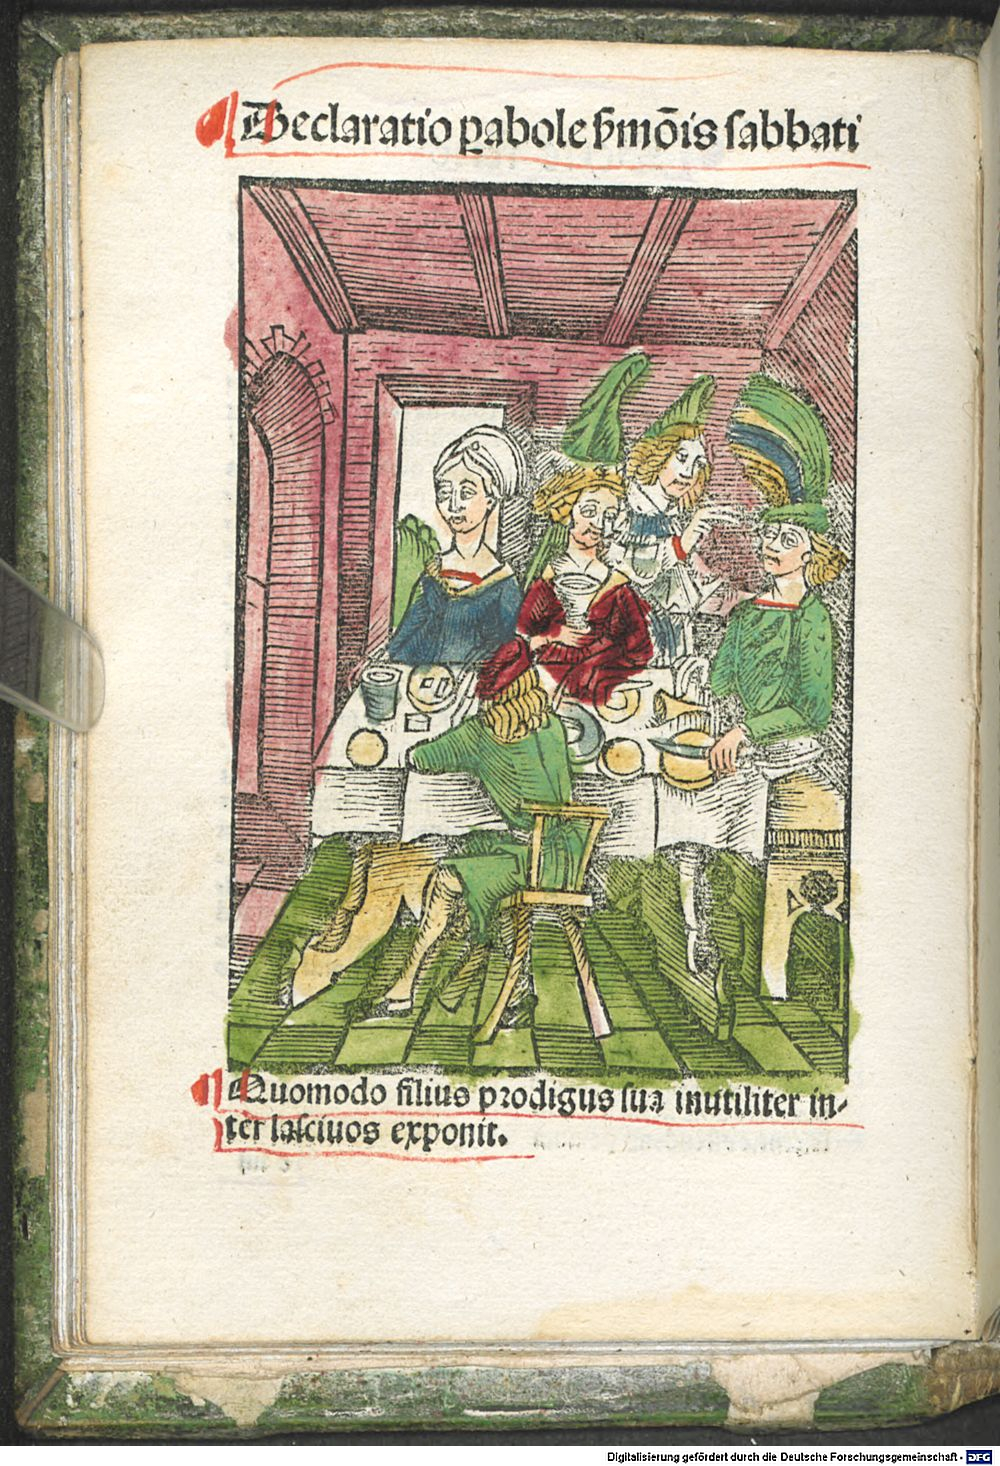 Declaratio ꝑabole ẜmōis sabbati
Quomodo filius prodigus sua inutiliter in-
ter lasciuos exponit.
Digitalisierung gefördert durch die Deutsche Forschungsgemeinschaft - DFG